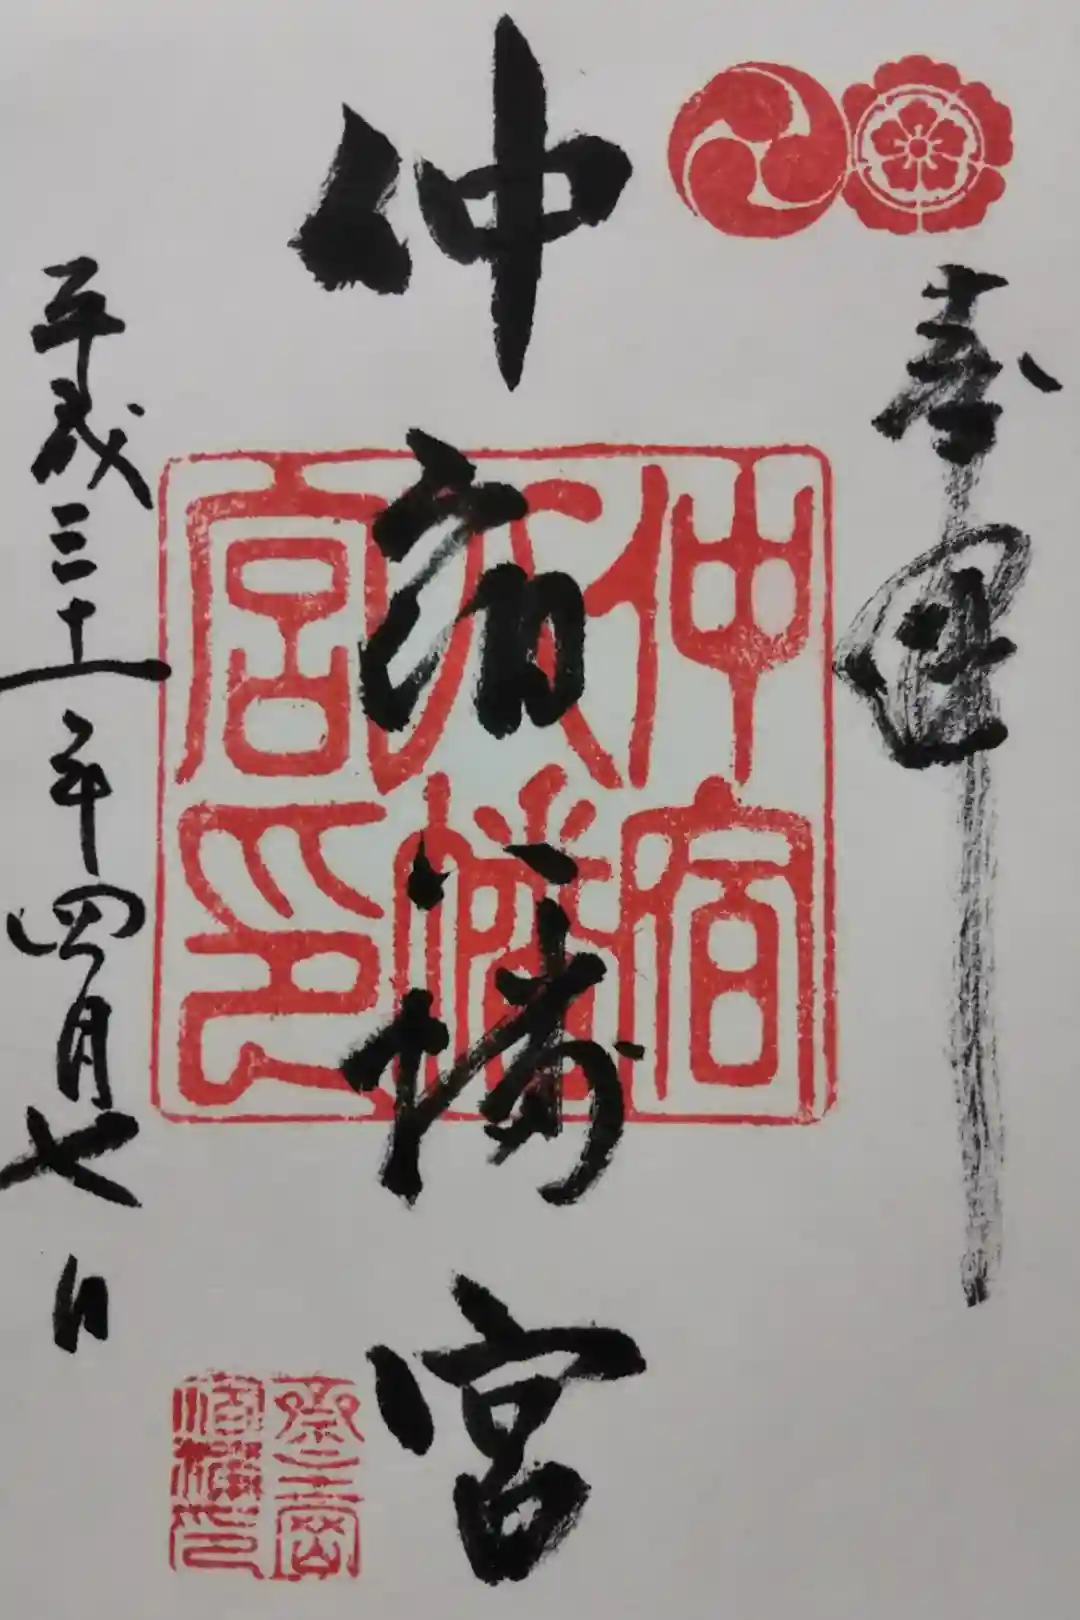 奉拝
仲宿八幡宮
平成三十一年四月七日
仲宿八幡宮印